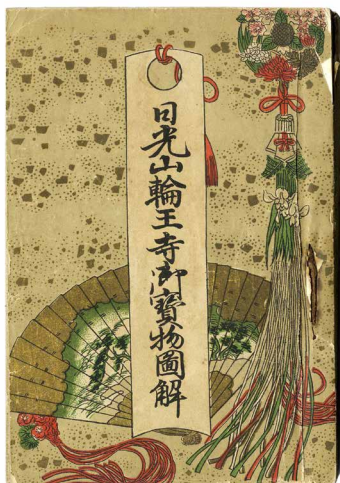 日光山輪王寺御寶物圖解